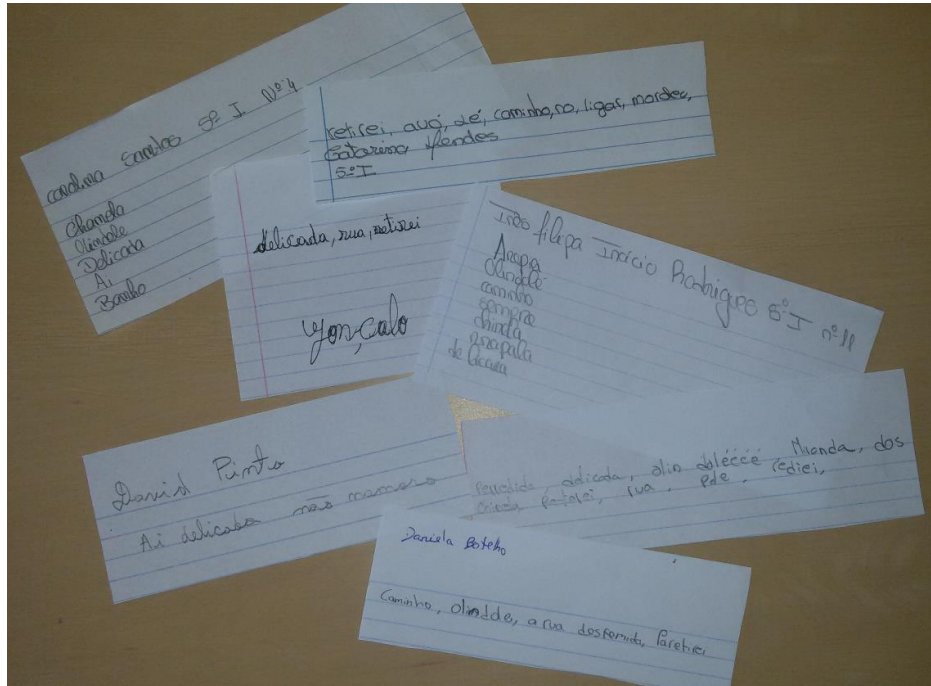 Carolina Santos 5º I Nº 4
Chamela
Olindole
Delicada
Ai
Banho
retirei, avó, zé, caminho, no, ligas, mordes,
Catarina Mendes
5.º I
delicada, rua, retirei
Gonçalo
Inês filipa Inácio Rodrigues 5.º I nº 11
Arapa
Olindolé
caminho
sempre
chinda
David Pinto
Ai delicada não
delicada, olin dolécéé, Mionda, dos
rua, Pde, rediei,
Daniela Botelho
Caminho, Olindde, a rua dosfemida, Paretirei